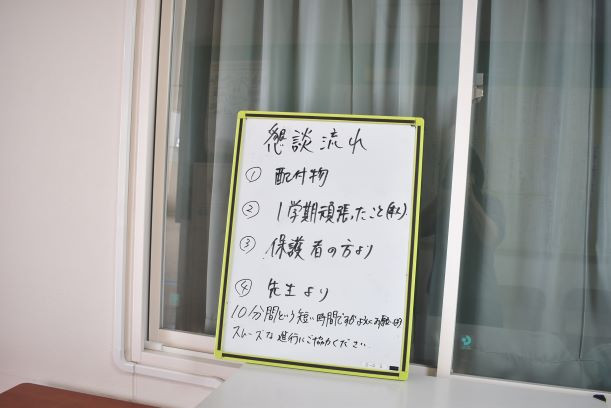 懇談流れ
① 配付物
② 1学期頑張ったこと(本人)
③ 保護者の方より
④ 先生より
10分間という短い時間ですが よろしくお願いします
スムーズな進行にご協力ください